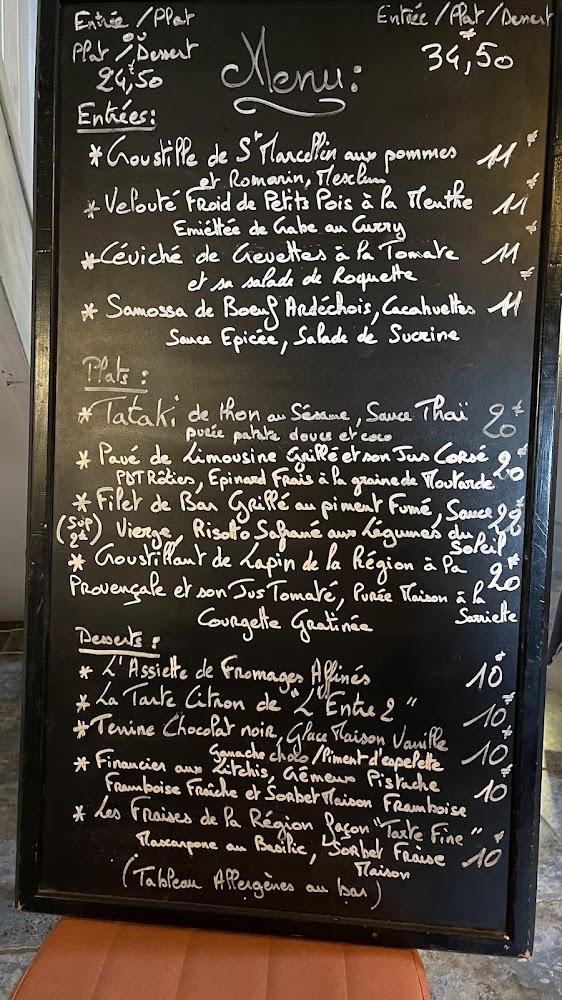 Entrée / Plat
ou
Plat / Dessert
24,50
Entrée / Plat / Dessert
34,50
Menu:
Entrées:
* Croustille de St Marcellin aux pommes 11€
et Romarin, Mesclun
* Velouté Froid de Petits Pois à la Menthe 11€
Emiéttée de Crabe au Curry
* Céviché de Crevettes à la Tomate 11€
et sa salade de Roquette
* Samossa de Boeuf Ardéchois, Cacahuettes 11€
Sauce Epicée, Salade de Sucrine
Plats:
* Tataki de thon au Sésame, Sauce Thaï 20€
purée patate douce et coco
* Pavé de Limousine Grillé et son Jus Corsé 20€
PDT Rôties, Epinard Frais à la graine de Moutarde
* Filet de Bar Grillé au piment Fumé, Sauce 22€
(Sup 2€) Vierge, Risotto Safrané aux Légumes du Soleil
* Croustillant de Lapin de la Région à la 20€
Provençale et son Jus Tomaté, Purée Maison à la Sarriette
Courgette Gratinée
Desserts:
* L'Assiette de Fromages Affinés 10€
* La Tarte Citron de "L'Entre 2" 10€
* Terrine Chocolat noir, Glace Maison Vanille 10€
Ganache choco / Piment d'espelette
* Financier aux Litchis, Crémeux Pistache 10€
Framboise Fraîche et Sorbet Maison Framboise
* Les Fraises de la Région façon "Tarte Fine" 10€
Mascarpone au Basilic, Sorbet Fraise Maison
(Tableau Allergènes au bar)